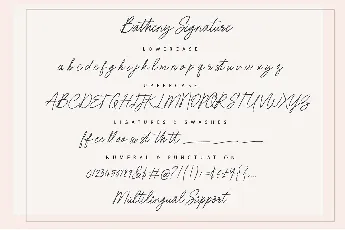 Batheny Signature
LOWERCASE
a b c d e f g h i j k l m n o p q r s t u v w x y z
UPPERCASE
ABCDEFGHIJKLMNOPQRSTUVWXYZ
LIGATURES & SWASHES
NUMERAL & PUNCTUATION
0123456789
Multilingual Support